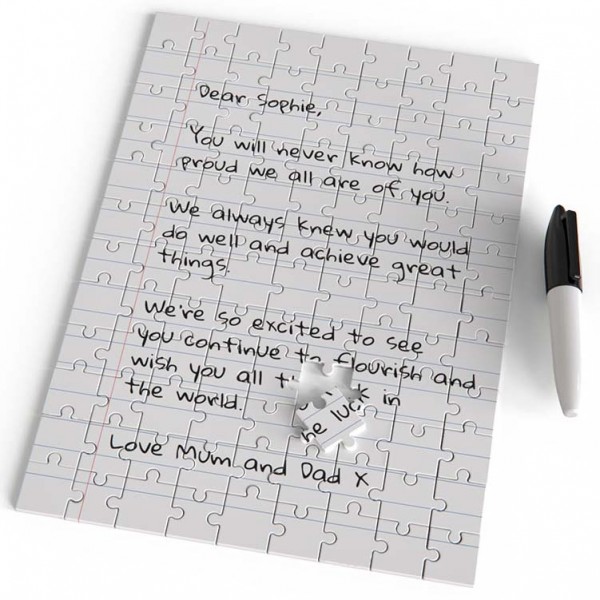 Dear Sophie,
You will never know how
proud we all are of you.
We always knew you would
do well and achieve great
things.
We're so excited to see
you continue to flourish and
wish you all the luck in
the world.
Love Mum and Dad X